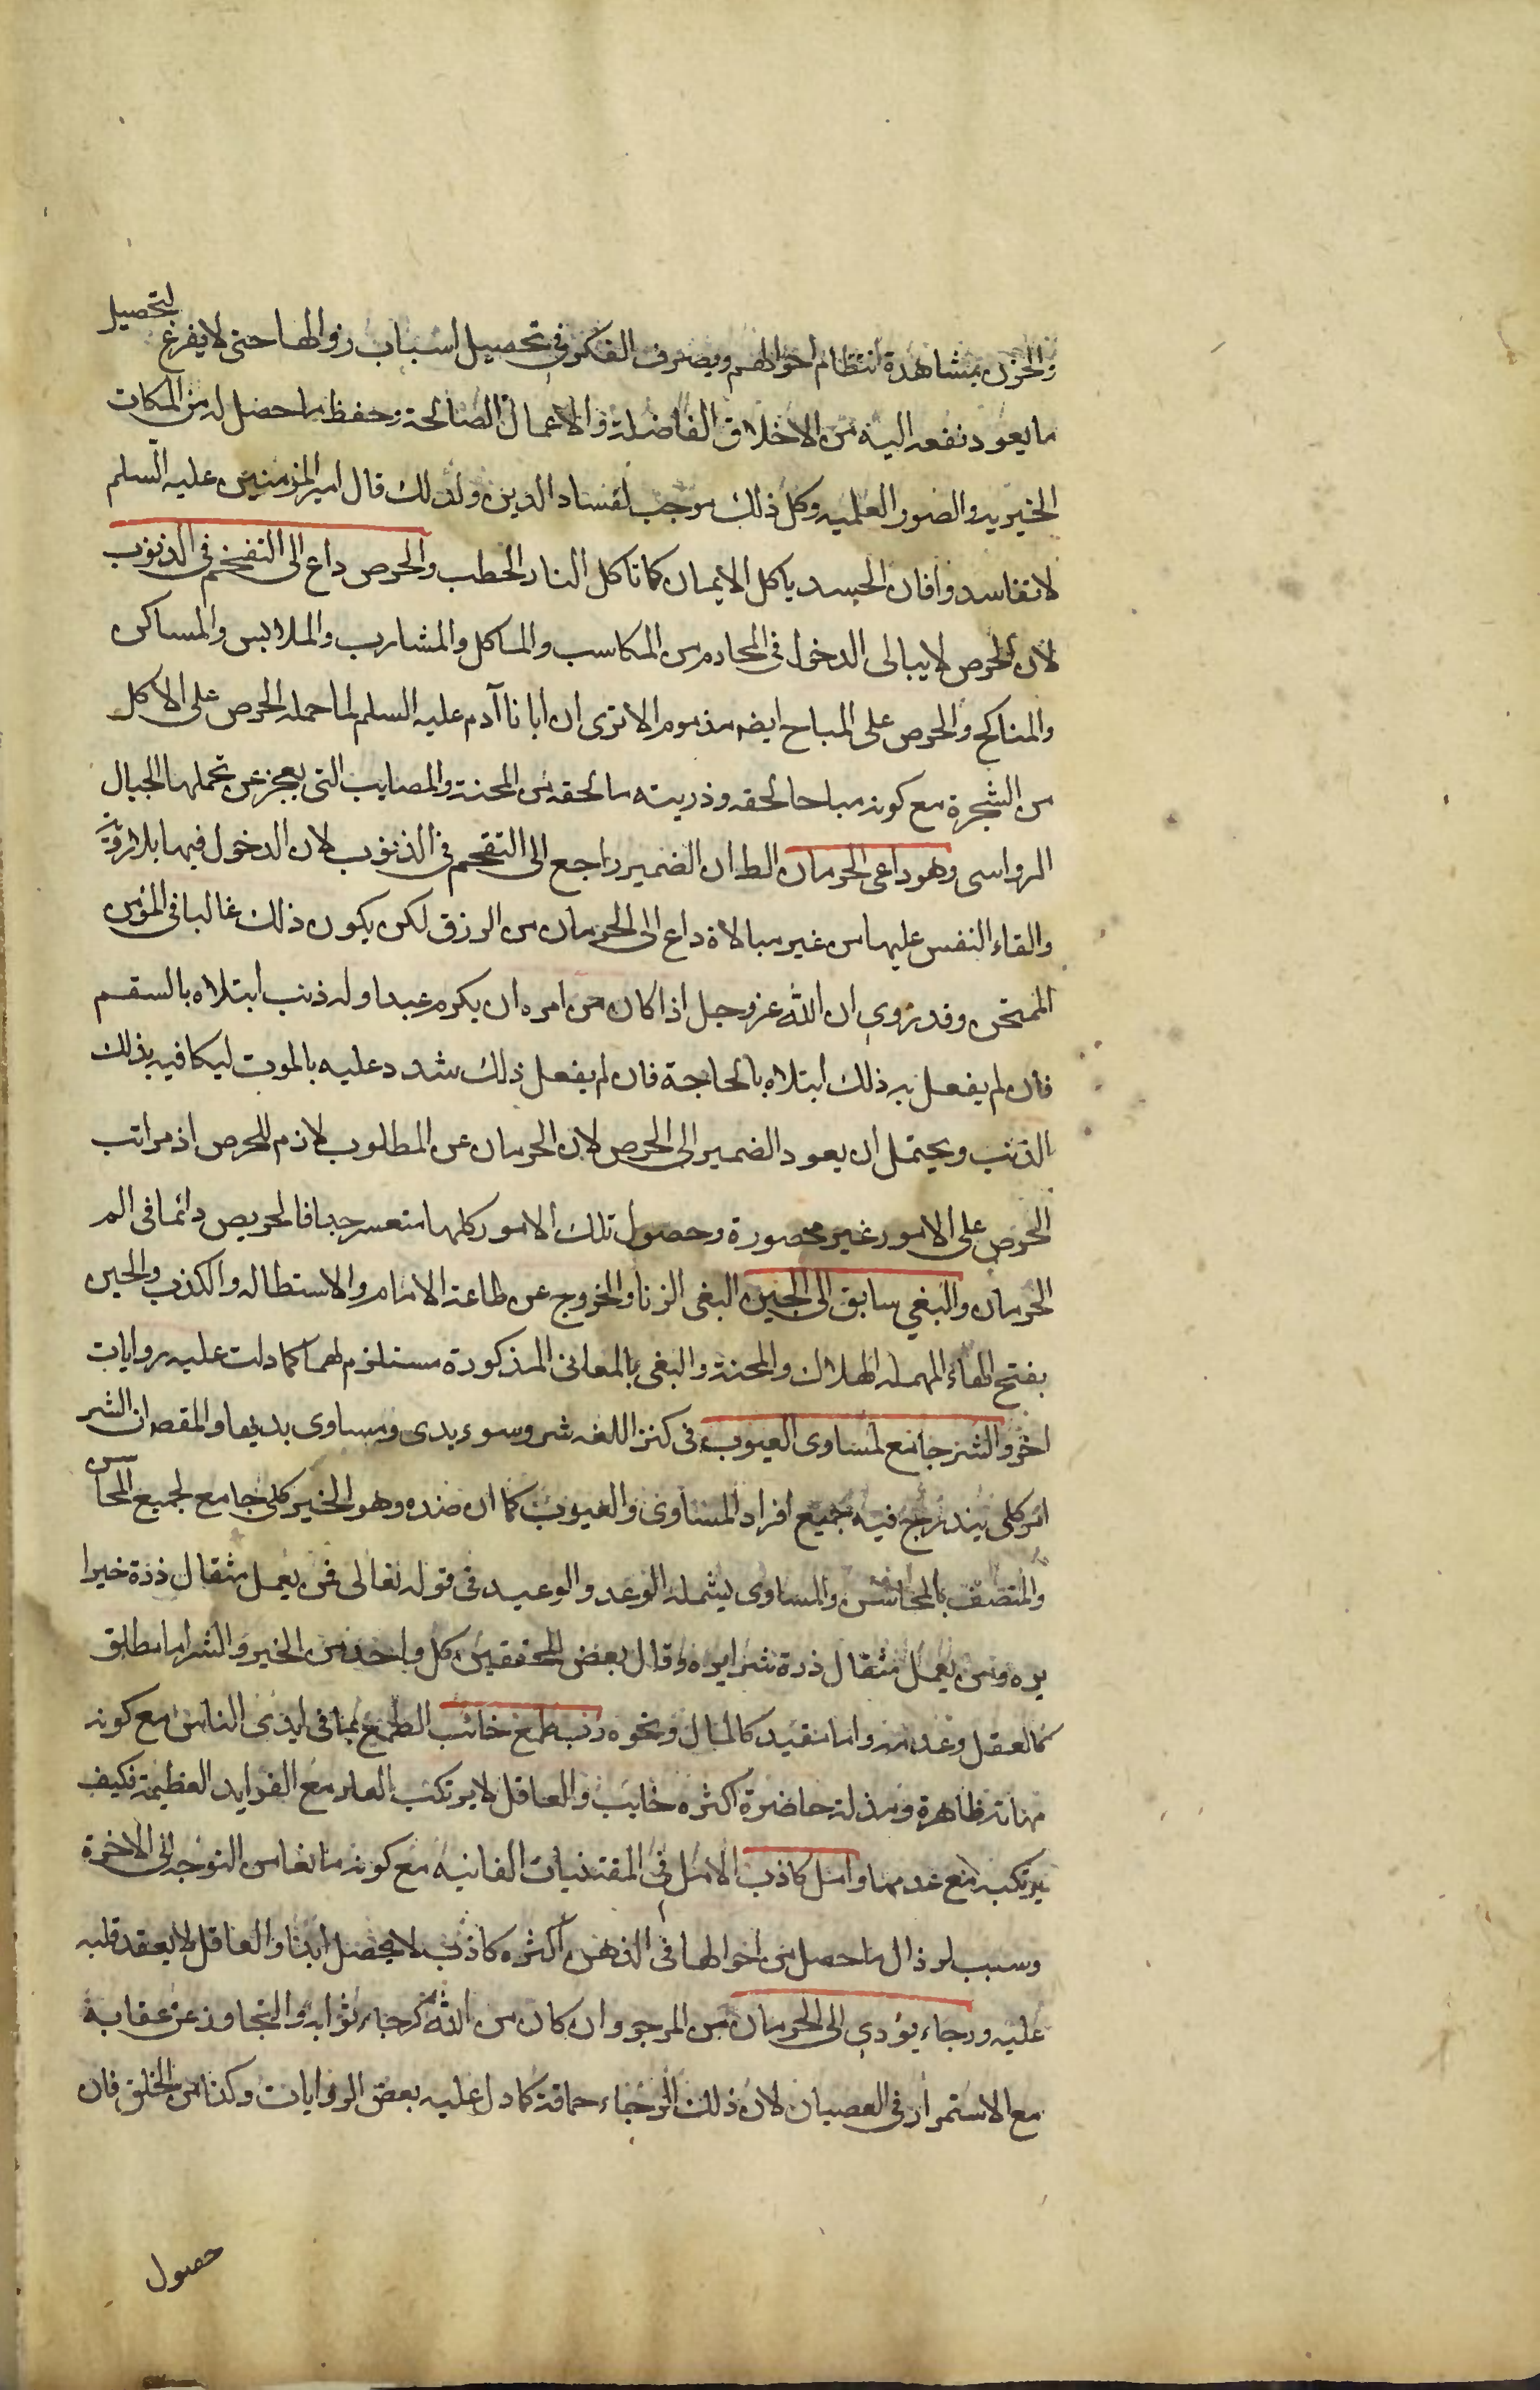 والحزن بمشاهدة انتظام احوالهم ويصرف الفكر فى تحصيل اسباب زوالها حتى لا يفرغ لتحصيل
ما يعود نفعه اليه من الاخلاق الفاضلة والاعمال الصالحة وحفظ ما حصل له من الملكات
الخيريه والصور العلميه وكل ذلك موجب لفساد الدين ولذلك قال امير المؤمنين عليه السلم
لا تحاسدوا فان الحسد ياكل الايمان كما تاكل النار الحطب والحرص داع الى التقحم فى الذنوب
لان الحرص لا يبالى الدخول فى المحارم من المكاسب والماكل والمشارب والملابس والمساكن
والمناكح والحرص على المباح ايضه مذموم الا ترى ان ابانا آدم عليه السلم لما حمله الحرص على الاكل
من الشجرة مع كونه مباحا لحقه وذريته ما لحقه من المحنة والمصايب التى يعجز عن تحملها الجبال
الرواسى وهو داعى الحرمان الظ ان الضمير راجع الى التقحم فى الذنوب لان الدخول فيها بلا روية
والقاء النفس عليها من غير مبالاة داع الى الحرمان من الرزق لكن يكون ذلك غالبا فى المؤمن
الممتحن وقد روى ان الله عز وجل اذا كان من امره ان يكرم عبدا وله ذنب ابتلاه بالسقم
فان لم يفعل به ذلك ابتلاه بالحاجة فان لم يفعل ذلك شدد عليه بالموت ليكافيه بذلك
الذنب ويحتمل ان يعود الضمير الى الحرص لان الحرمان عن المطلوب لازم للحرص اذ مراتب
الحرص على الامور غير محصورة وحصول تلك الامور كلها متعسر جدا فالحريص دائما فى الم
الحرمان والبغي سابق الى الحين البغى الزنا والخروج عن طاعة الامام والاستطاله والكذب والحين
بفتح الحاء المهمله الهلاك والمحنة والبغى بالمعانى المذكورة مستلزم لهما كما دلت عليه روايات
اخر والشر جامع لمساوى العيوب فى كنز اللغه شر وسوء بدى ومساوى بديها والمقص ان الشر
امر كلى يندرج فيه جميع افراد المساوى والعيوب كما ان ضده وهو الخير كلى جامع لجميع المحاسن
والمتصف بالمحاسن والمساوى يشمله الوعد والوعيد فى قوله تعالى فمن يعمل مثقال ذرة خيرا
يره ومن يعمل مثقال ذرة شرا يره وقال بعض المحققين كل واحد من الخير والشر اما مطلق
كالعقل وعدمه واما مقيد كالمال ونحوه رب طمع خائب الطمع بما فى ايدى الناس مع كونه
مهانة ظاهرة ومذلة حاضرة اكثره خايب والعاقل لا يرتكب العار مع الفوايد العظيمة فكيف
يرتكبه مع عدمها وامل كاذب الامل فى المقتنيات الفانيه مع كونه مانعا من التوجه الى الاخرة
وسبب لزوال ما حصل من احوالها فى الذهن اكثره كاذب لا يحصل ابدا والعاقل لا يعقد قلبه
عليه ورجاء يؤدى الى الحرمان من المرجو وان كان من الله كرجاء ثوابه والتجاوز عن عقابه
مع الاستمرار فى العصيان لان ذلك الرجاء حماقة كما دل عليه بعض الروايات وكذا من الخلق فان
حصول